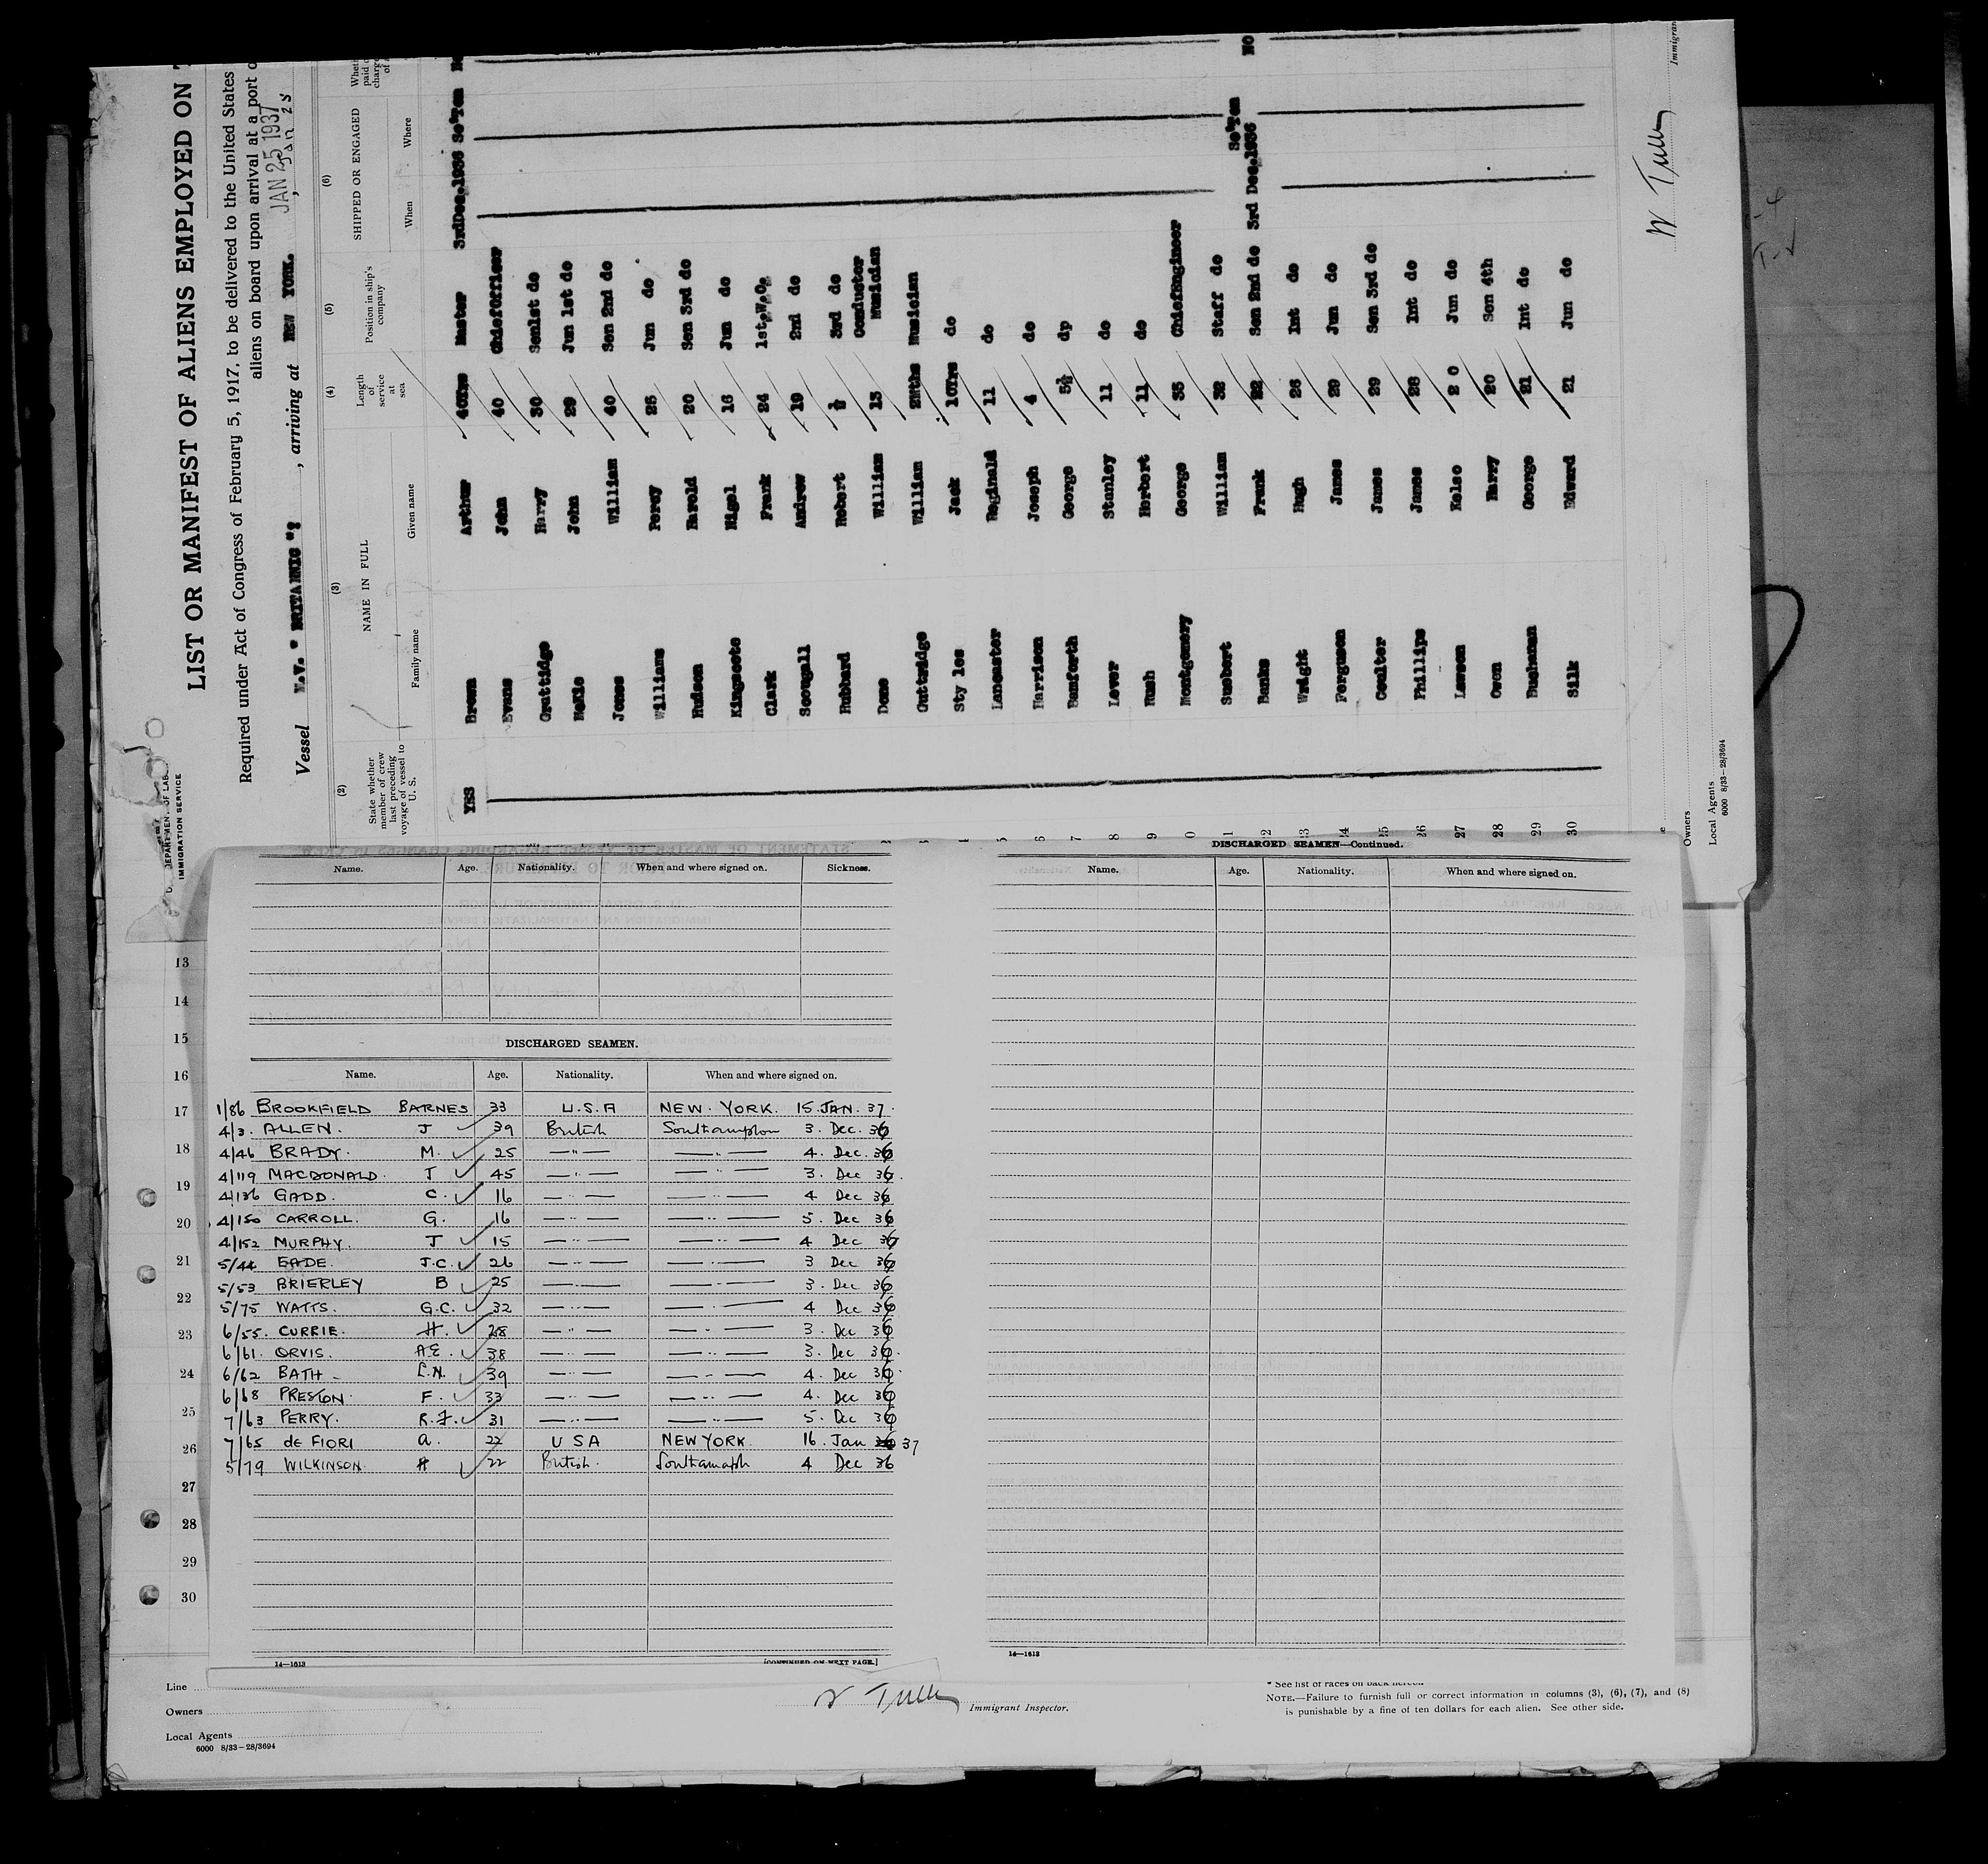 LIST OR MANIFEST OF ALIENS EMPLOYED ON
Required under Act of Congress of February 5, 1917, to be delivered to the United States
aliens on board upon arrival at a port o
JAN 25 1937
Vessel M.V. " BRITANNIC ", arriving at NEW YORK. , Jan 25
IMMIGRATION SERVICE
(2) (3) (4) (5) (6)
State whether member of crew last preceding voyage of vessel to U. S. NAME IN FULL Length of service at sea Position in ship's company SHIPPED OR ENGAGED
Family name Given name When Where
YES Brown Arthur 40Yrs Master 3rdDec.1936 So'Ton
Evans John 40 Chiefofficer
Grattidge Harry 30 Sen1st do
McKie John 29 Jun 1st do
Jones William 40 Sen 2nd do
Williams Percy 25 Jun do
Hudson Harold 20 Sen 3rd do
Kingscote Nigel 16 Jun do
Clark Frank 24 1st.W.O.
Scougall Andrew 19 2nd do
Hubbard Robert ½ 3rd do
Done William 13 Conductor Musician
Guttridge William 2Mths Musician
Sty les Jack 10Yrs do
Lancaster Reginald 11 do
6 Harrison Joseph 4 do
7 Bamforth George 5½ dp
8 Lever Stanley 11 do
9 Rush Herbert 11 do
0 Montgomery George 35 ChiefEngineer
1 Sumbert William 32 Staff do
2 Banks Frank 22 Sen 2nd do 3rd Dec.1936 So'Ton NO
3 Wright Hugh 26 Int do
24 Ferguson James 29 Jun do
25 Coulter James 29 Sen 3rd do
26 Phillips James 28 Int do
27 Lawson Kelso 2 0 Jun do
28 Owen Harry 20 Sen 4th
29 Buchanan George 21 Int do
30 Silk Edward 21 Jun do
Owners
Local Agents
6000 8/33-28/3694
Name. Age. Nationality. When and where signed on. Sickness.
DISCHARGED SEAMEN.
Name. Age. Nationality. When and where signed on.
1/86 BROOKFIELD BARNES 33 U.S.A NEW. YORK. 15. JAN. 37.
4/3. ALLEN. J 39 British Southampton 3. Dec. 36
4/46 BRADY. M. 25 —"— —"— 4. Dec. 36
4/119 MACDONALD. J 45 —"— —"— 3. Dec 36.
4/136 GADD. C. 16 —"— —"— 4 Dec 36
4/150 CARROLL. G. 16 —"— —"— 5. Dec 36
4/152 MURPHY. J 15 —"— —"— 4 Dec 36
5/44 EADE. J.C. 26 —"— —"— 3 Dec 36
5/53 BRIERLEY B 25 —"— —"— 3. Dec 36
5/75 WATTS. G.C. 32 —"— —"— 4 Dec 36
6/55. CURRIE. H. 28 —"— —"— 3. Dec 36
6/61. ORVIS. A.E. 38 —"— —"— 3. Dec 36.
6/62 BATH L.N. 39 —"— —"— 4. Dec 36.
6/68 PRESTON. F. 33 —"— —"— 4. Dec 36
7/63 PERRY. R.J. 31 —"— —"— 5. Dec 36
7/65 de FIORI A. 22 U S A NEW YORK. 16. Jan 37
5/79 WILKINSON. H 22 British. 4 Dec 36
14—1613 [CONTINUED ON NEXT PAGE.]
DISCHARGED SEAMEN—Continued.
Name. Age. Nationality. When and where signed on.
14—1613
13
14
15
16
17
18
19
20
21
22
23
24
25
26
27
28
29
30
Line
Owners
Local Agents
6000 8/33-28/3694
Immigrant Inspector.
* See list of races on back hereof.
NOTE.—Failure to furnish full or correct information in columns (3), (6), (7), and (8)
is punishable by a fine of ten dollars for each alien. See other side.